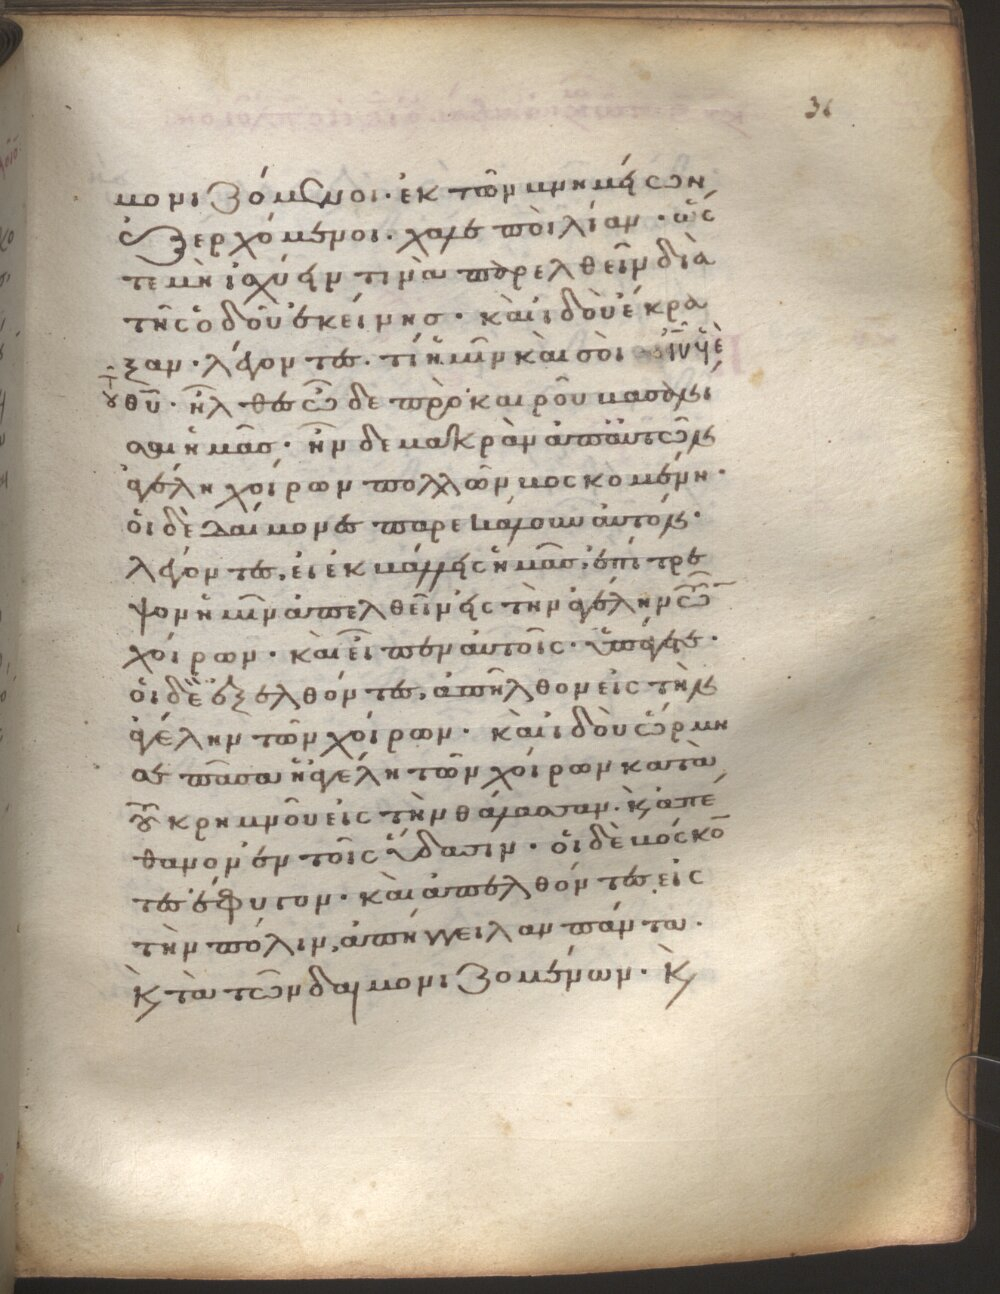 36
μονιζόμενοι· ἐκ τῶν μνημείων
ἐξερχόμενοι· χαλεποὶ λίαν· ὥς
τε μὴ ἰσχύειν τινὰ παρελθεῖν διὰ
τῆς ὁδοῦ ἐκείνης· καὶ ἰδοὺ ἔκρα
ξαν· λέγοντες· τί ἡμῖν καὶ σοὶ ἰῦ υἱὲ
τοῦ θῦ· ἦλθες ὧδε πρὸ καιροῦ βασανί
σαι ἡμᾶς· ἦν δε μακρὰν ἀπ' αὐτῶν
ἀγέλη χοίρων πολλῶν βοσκομένη·
οἱ δὲ δαίμονες παρεκάλουν αὐτὸν·
λέγοντες, εἰ ἐκβάλλεις ἡμᾶς, ἐπίτρε
ψον ἡμῖν ἀπελθεῖν εἰς τὴν ἀγέλην τῶν
χοίρων· καὶ εἶπεν αὐτοῖς· ὑπάγετε·
οἱ δὲ ἐξελθόντες, ἀπῆλθον εἰς τὴν
ἀγέλην τῶν χοίρων· καὶ ἰδοὺ ὥρμη
σε πᾶσα ἡ ἀγέλη τῶν χοίρων κατὰ
τοῦ κρημνοῦ εἰς τὴν θάλασσαν· κ̀ ἀπέ
θανον ἐν τοῖς ὕδασιν· οἱ δὲ βόσκο
τες ἔφυγον· καὶ ἀπελθόντες εἰς
τὴν πόλιν, ἀπήγγειλαν πάντα·
κ̀ τὰ τῶν δαιμονιζομένων· κ̀